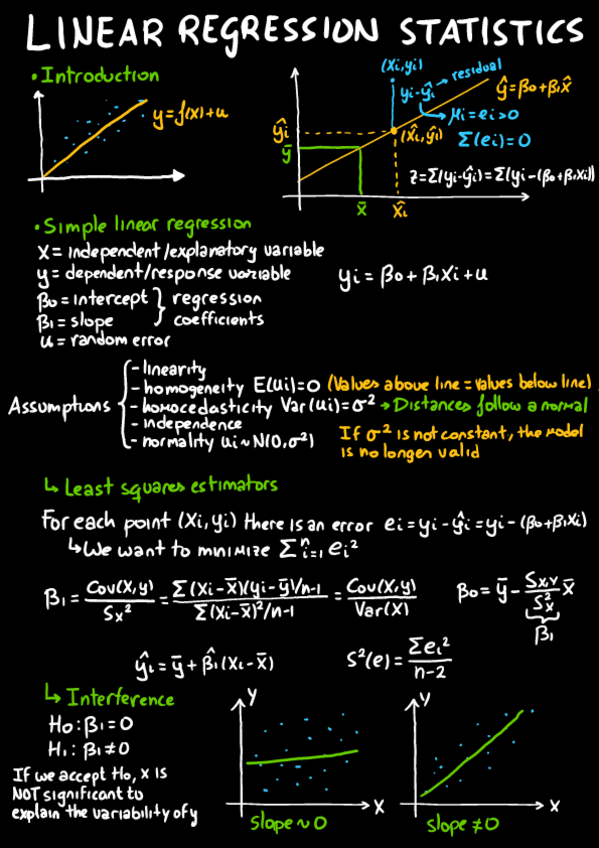 LINEAR REGRESSION STATISTICS
• Introduction
y=f(x)+u
(xi,yi)
yi-ŷi → residual
ŷ=β0+β1x̂
μi=ei>0
ŷi
(x̂i,ŷi)
Σ(ei)=0
ȳ
z=Σ(yi-ŷi)=Σ(yi-(β0+β1xi))
x̄
x̂i
• Simple linear regression
X= independent/explanatory variable
y= dependent/response variable
yi = β0+β1xi+u
β0=intercept } regression
β1=slope } coefficients
u=random error
Assumptions
-linearity
-homogeneity E(ui)=0 (Values above line = values below line)
-homocedasticity Var(ui)=σ² → Distances follow a normal
-independence
-normality ui~N(0,σ²)
If σ² is not constant, the model
is no longer valid
↳ Least squares estimators
For each point (xi,yi) there is an error ei=yi-ŷi=yi-(β0+β1xi)
↳We want to minimize Σⁿi=1 ei²
β1= Cov(x,y)/Sx² = Σ(xi-x̄)(yi-ȳ)/n-1 / Σ(xi-x̄)²/n-1 = Cov(x,y)/Var(x)
β0=ȳ- Sx,y/S²x x̄
β1
ŷi=ȳ+β̂1(xi-x̄)
S²(e)= Σei²/n-2
↳ Interference
H0:β1=0
H1: β1≠0
If we accept H0, x is
NOT significant to
explain the variability of y
Y
X
slope~0
Y
X
slope≠0